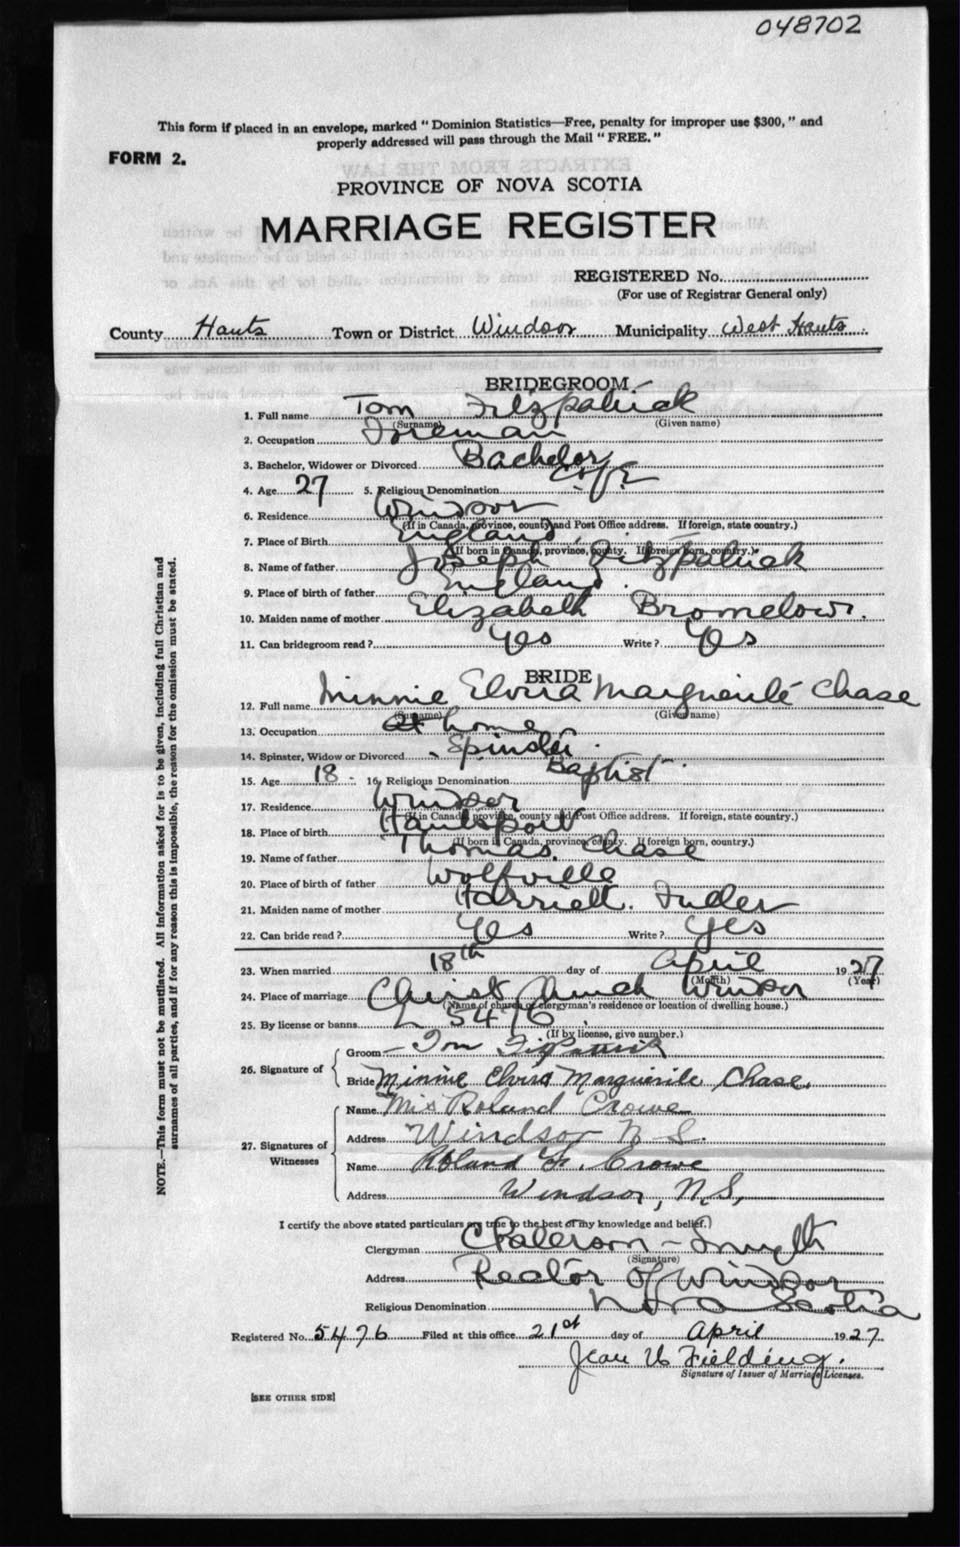 048702
This form if placed in an envelope, marked "Dominion Statistics—Free, penalty for improper use $300," and
properly addressed will pass through the Mail "FREE."
FORM 2.
PROVINCE OF NOVA SCOTIA
MARRIAGE REGISTER
REGISTERED No.
(For use of Registrar General only)
County Hants Town or District Windsor Municipality West Hants
BRIDEGROOM
1. Full name Tom Fitzpatrick
(Surname) (Given name)
2. Occupation Foreman
3. Bachelor, Widower or Divorced Bachelor
4. Age 27 5. Religious Denomination C of E
6. Residence Windsor
(If in Canada, province, county and Post Office address. If foreign, state country.)
7. Place of Birth England
(If born in Canada, province, county. If foreign born, country.)
8. Name of father Joseph Fitzpatrick
9. Place of birth of father England
10. Maiden name of mother Elizabeth Bromelow.
11. Can bridegroom read? Yes Write? Yes
BRIDE
12. Full name Minnie Elvira Marguerite Chase
(Surname) (Given name)
13. Occupation at home
14. Spinster, Widow or Divorced Spinster
15. Age 18 16. Religious Denomination Baptist
17. Residence Windsor
(If in Canada, province, county and Post Office address. If foreign, state country.)
18. Place of birth Hantsport
(If born in Canada, province, county. If foreign born, country.)
19. Name of father Thomas Chase
20. Place of birth of father Wolfville
21. Maiden name of mother Harriett
22. Can bride read? Yes Write? Yes
23. When married 18th day of April 1927
(Month) (Year)
24. Place of marriage Christ Church Windsor
(Name of church or clergyman's residence or location of dwelling house.)
25. By license or banns L 5476
(If by license, give number.)
26. Signature of
Groom Tom Fitzpatrick
Bride Minnie Elvira Marguerite Chase.
27. Signatures of Witnesses
Name Mrs Roland Crowe
Address Windsor N.S.
Name Roland F. Crowe
Address Windsor, N.S.,
I certify the above stated particulars are true to the best of my knowledge and belief.
Clergyman C Paterson-Smyth
(Signature)
Address Rector of Windsor
Religious Denomination Nova Scotia
Registered No. 5476 Filed at this office 21st day of April 1927
Jean Fielding.
Signature of Issuer of Marriage Licenses.
[SEE OTHER SIDE]
NOTE.—This form must not be mutilated. All information asked for is to be given, including full Christian and
surnames of all parties, and if for any reason this is impossible, the reason for the omission must be stated.